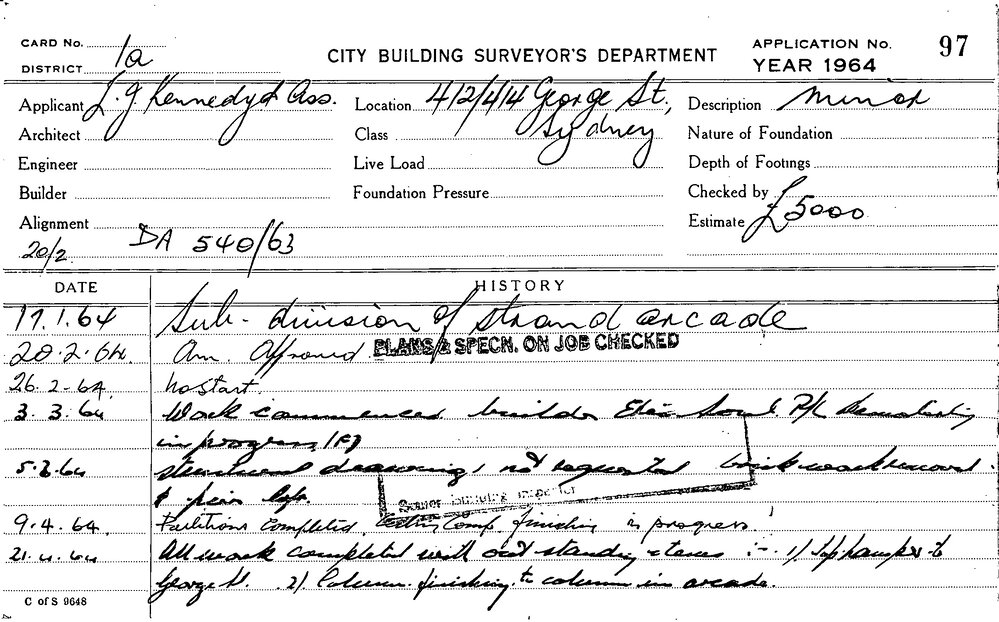 CARD No.
DISTRICT 1a
CITY BUILDING SURVEYOR'S DEPARTMENT
APPLICATION No. 97
YEAR 1964
Applicant L. J. Kennedy & Ass.
Location 412/414 George St,
Sydney
Description minor
Architect
Class
Nature of Foundation
Engineer
Live Load
Depth of Footings
Builder
Foundation Pressure
Checked by
Estimate £5000
Alignment
20/2 DA 540/63
DATE HISTORY
17.1.64 Sub-division of strand arcade
20.2.64 Am. Approved PLANS & SPECN. ON JOB CHECKED
26.2.64 No start.
3.3.64 Work commenced builder P/L Demolishing
in progress (F)
5.3.64 drawings not requested brickwork removed
& piers
Senior Building Inspector
9.4.64 Partitions completed finishing in progress
21.4.64 All work completed with outstanding items :- 1/ to
George St. 2/ Column finishing to column in arcade.
C of S 9648